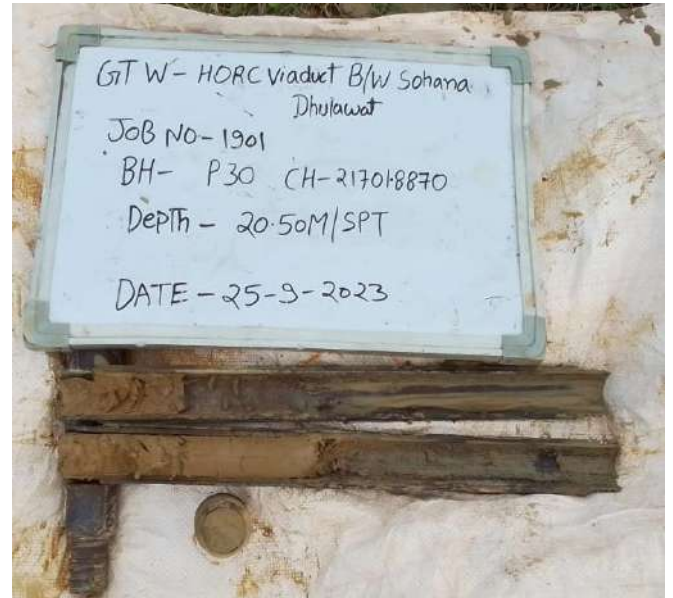 GT W- HORC Viaduct B/W Sohana
Dhulawat
JOB NO- 1901
BH- P30 CH-21701.8870
Depth - 20.50M/SPT
DATE - 25-9-2023